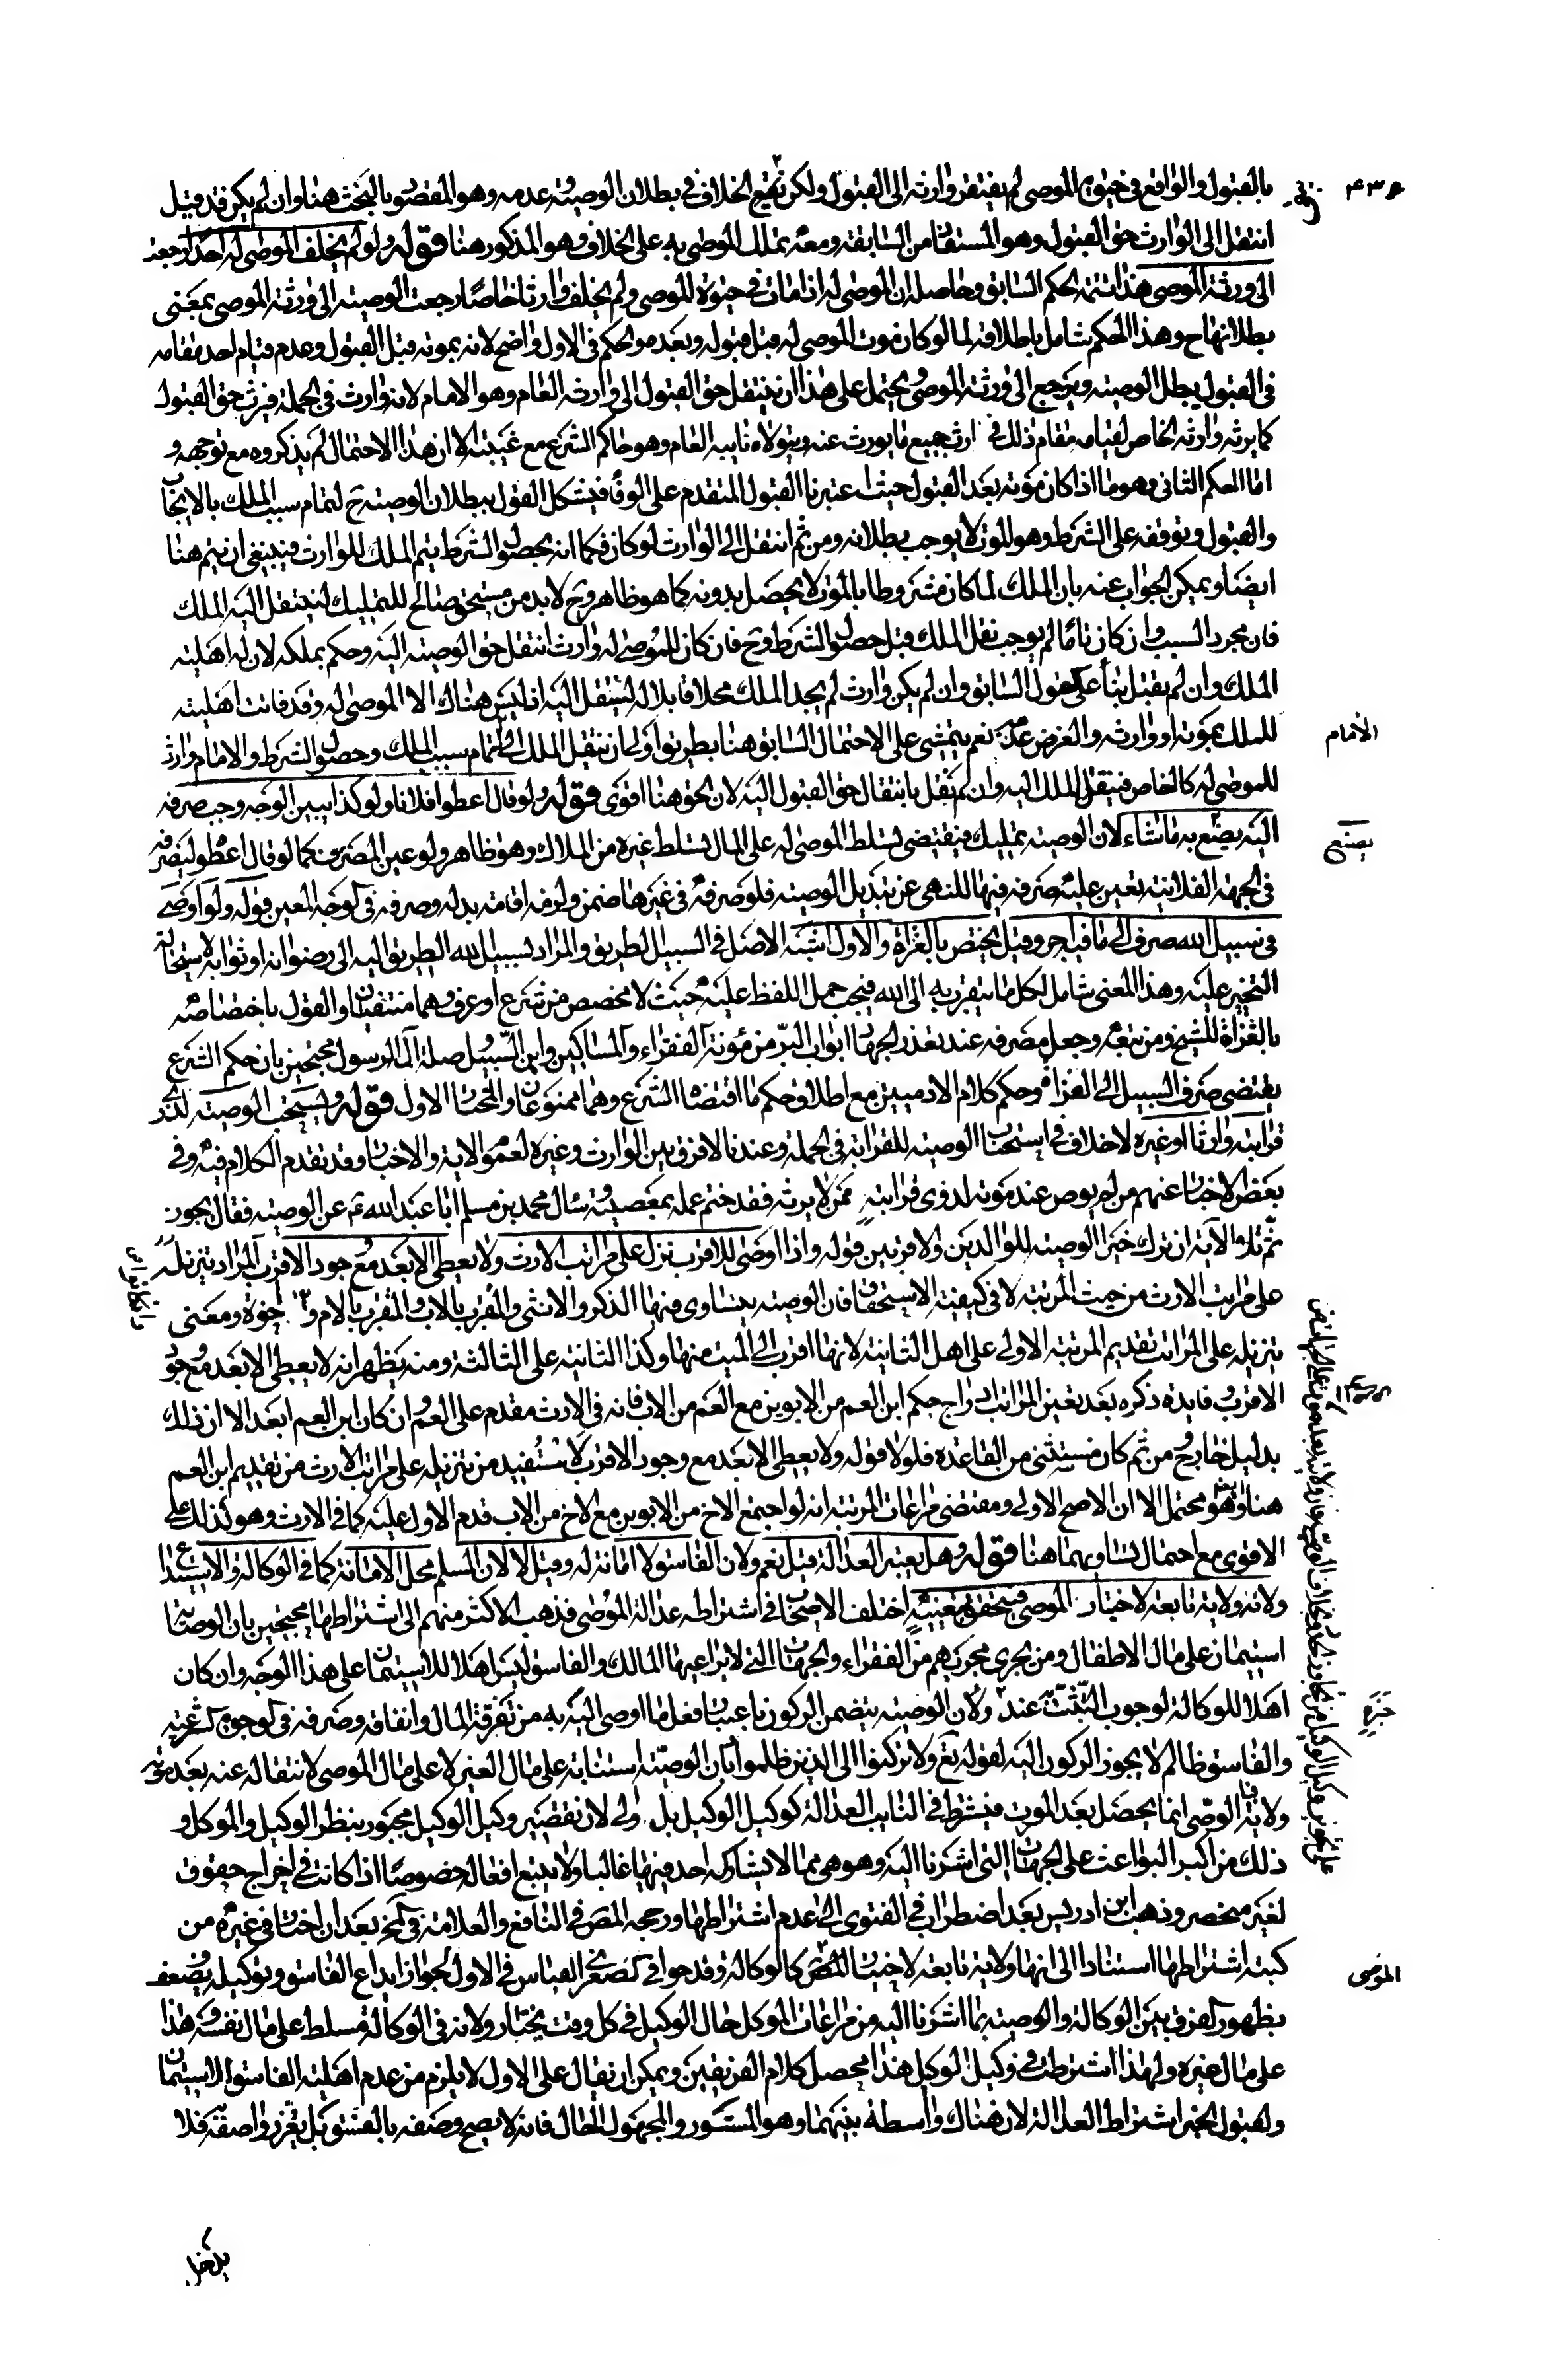 بالقبول والواقع في حيوة الموصى لم يفتقر وارثه الى القبول ولكن يقع الخلاف في بطلان الوصية وعدمه وهو المقصود بالبحث هنا وان لم يكن قد قبل
انتقل الى الوارث حق القبول وهو المستفاد من السابقة ومعه يملك الموصى به على الخلاف وهو المذكور هنا قوله ولو لم يخلف الموصى له احدا رجعت
الى ورثة الموصى هذا تتمة الحكم السابق وحاصله ان الموصى له اذا مات في حيوة الموصى ولم يخلف وارثا خاصا رجعت الوصية الى ورثة الموصى بمعنى
بطلانها ح وهذا الحكم شامل باطلاقه لما لو كان موت الموصى له قبل قبوله وبعده والحكم في الاول واضح لانه بموته قبل القبول وعدم قيام احد مقامه
في القبول يبطل الوصية ويرجع الى ورثة الموصى ويحتمل على هذا ان ينتقل حق القبول الى وارثه العام وهو الامام لانه وارث في الجملة فيرث حق القبول
كما يرثه وارثه الخاص لقيامه مقام ذلك في ارث جميع ما يورث عنه ويتولاه نايبه العام وهو حاكم الشرع مع غيبته الا ان هذا الاحتمال لم يذكروه مع توجهه و
اما الحكم الثانى وهو ما اذا كان موته بعد القبول حيث اعتبرنا القبول المتقدم على الوفاة فيشكل القول ببطلان الوصية ح لتمام سبب الملك بالايجاب
والقبول وتوقفه على الشرط وهو الموت لا يوجب بطلانه ومن ثم انتقل الى الوارث لو كان فكما انه بحصول الشرط يتم الملك للوارث فينبغى ان يتم هنا
ايضا ويمكن الجواب عنه بان الملك لما كان مشروطا بالموت لا يحصل بدونه كما هو ظاهر وح لا بد من مستحق صالح للتمليك لينتقل اليه الملك
فان مجرد السبب وان كان تاما لم يوجب نقل الملك قبل حصول الشرط وح فان كان للموصى له وارث انتقل حق الوصية اليه وحكم بملكه لان له اهلية
الملك وان لم يقبل بناء على القول السابق وان لم يكن وارث لم يجد الملك محلا قابلا له لينتقل اليه اذ ليس هناك الا الموصى له وقد فاتت اهليته
للملك بموته او وارثه والفرض عدمه نعم يتمشى على الاحتمال السابق هنا بطريق اولى ان ينتقل الملك الى الامام لتمام سبب الملك وحصول الشرط والامام وارث
للموصى له كالخاص فينتقل الملك اليه وان لم نقل بانتقال حق القبول اليه لان الحق هنا اقوى قوله ولو قال اعطوا فلانا ولو كذا يبين الوجه وجب صرفه
اليه يصنع به ما شاء لان الوصية تمليك فيقتضى تسلط الموصى له على المال تسلط غيره من الملاك وهو ظاهر ولو عين المصرف كما لو قال اعطوه ليصرفه
في الجهة الفلانية تعين عليه صرفه فيها للنهى عن تبديل الوصية فلو صرفه في غيرها ضمن ولزمه اقامة بدله وصرفه في الوجه المعين قوله ولو اوصى
في سبيل الله صرف الى ما فيه اجر وقيل يختص بالغزاة والاول اشبه الاصل في السبيل الطريق والمراد بسبيل الله الطريق اليه الى رضوانه او ثوابه لاستحالة
التحيز عليه وهذا المعنى شامل لكل ما يتقرب به الى الله فيجب حمل اللفظ عليه حيث لا مخصص من شرع او عرف وهما منتفيان والقول باختصاصه
بالغزاة للشيخ ومن تبعه وجعل مصرفه عند تعذر الجهاد ابواب البر من مؤنة الفقراء والمساكين وابن السبيل وصلة آل الرسول محتجين بان حكم الشرع
يقتضى صرف السبيل الى الغزاة وحكم كلام الادميين مع اطلاقه حكم ما اقتضاه الشرع وهما ممنوعان والمختار الاول قوله ويستحب الوصية لذى
قرابته وارثا او غيره لا خلاف في استحباب الوصية للقرابة في الجملة وعندنا لا فرق بين الوارث وغيره لعموم الاية والاخبار وقد تقدم الكلام فيه وفى
بعض الاخبار عنهم من لم يوص عند موته لذوى قرابته ممن لا يرثه فقد ختم عمله بمعصية وسئال محمد بن مسلم ابا عبد الله ع عن الوصية فقال يجوز
ثم تلا الآية ان ترك خيرا الوصية للوالدين والاقربين قوله واذا اوصى للاقرب نزل على مراتب الارث ولا يعطى الابعد مع وجود الاقرب المراد تنزيله
على مراتب الارث من حيث المرتبة لا في كيفية الاستحقاق فان الوصية يتساوى فيها الذكر والانثى والمتقرب بالاب والمتقرب بالام و اخوة ومعنى
تنزيله على المراتب تقديم المرتبة الاولى على اهل الثانية لانها اقرب الى الميت منها وكذا الثانية على الثالثة ومنه يظهر انه لا يعطى الابعد مع وجود
الاقرب وفايدة ذكره بعد تعين المراتب ادراج حكم ابن العم من الابوين مع العم من الاب فانه في الارث مقدم على العم وان كان ابن العم ابعد الا ان ذلك
بدليل خارج ومن ثم كان مستثنى من القاعدة فلولا قوله ولا يعطى الابعد مع وجود الاقرب لاستفيد من تنزيله على مراتب الارث من تقديم ابن العم
هنا وهو محتمل الا ان الاصح الاول ومقتضى مراعات المرتبة انه لو اجتمع الاخ من الابوين مع الاخ من الاب قدم الاول عليه كما في الارث وهو كذلك على
الاقوى مع احتمال تساويهما هنا قوله وهل يعتبر العدالة قيل نعم ولان الفاسق لا امانة له وقيل لا لان المسلم محل الامانة كما في الوكالة والاستيداع
ولانه ولاية تابعة لاختيار الموصى فيتحقق بتعيينه اختلف الاصحاب في اشتراط عدالة الموصى فذهب الاكثر منهم الى اشتراطها محتجين بان الوصاية
استيمان على مال الاطفال ومن يجرى مجراهم من الفقراء والجهات التى لا يراعيها المالك والفاسق ليس اهلا للاستيمان على هذا الوجه وان كان
اهلا للوكالة لوجوب التثبت عند ولان الوصية يتضمن الركون باعتبار فعل ما اوصى اليه به من تفرقة المال وانفاقه وصرفه في الوجوه الشرعية
والفاسق ظالم لا يجوز الركون اليه لقوله تع ولا تركنوا الى الذين ظلموا بان الوصية استنابة على مال الغير لا على مال الموصى لانتقاله عنه بعد موته
ولاية الوصى انما يحصل بعد الموت فيشترط في النايب العدالة كوكيل الوكيل بل اولى لان تقصير وكيل الوكيل مجبور بنظر الوكيل والموكل و
ذلك من اكبر البواعث على الجهات التى اشرنا اليه وهو هى مما لا يشاركه احد فيها غالبا ولا يتبع افعاله خصوصا اذا كانت في اخراج حقوق
لغير منحصر وذهب ابن ادريس بعد اضطراب في الفتوى الى عدم اشتراطها ورجحه المص في النافع والعلامة في لخ بعد ان اختار في غيره من
كتبه اشتراطها استنادا الى انها ولاية تابعة لاختيار كالوكالة وقدحوا في القياس في الاول لجواز ايداع الفاسق وتوكيله ويضعف
بظهور الفرق بين الوكالة والوصية بما اشرنا اليه من مراعات الموكل حال الوكيل في كل وقت يختار ولانه في الوكالة مسلط على مال نفسه وهذا
على مال غيره ولهذا اشترطت في وكيل الوكيل هذا محصل كلام الفريقين ويمكن ان يقال على الاول لا يلزم من عدم اهلية الفاسق للاستيمان
ولقبول الخبر اشتراط العدالة لان هناك واسطة بينهما وهو المستور والمجهول الحال فانه لا يصح وصفه بالفسق بل واصفه فلا
الامام
يصنع
خيره
الموصى